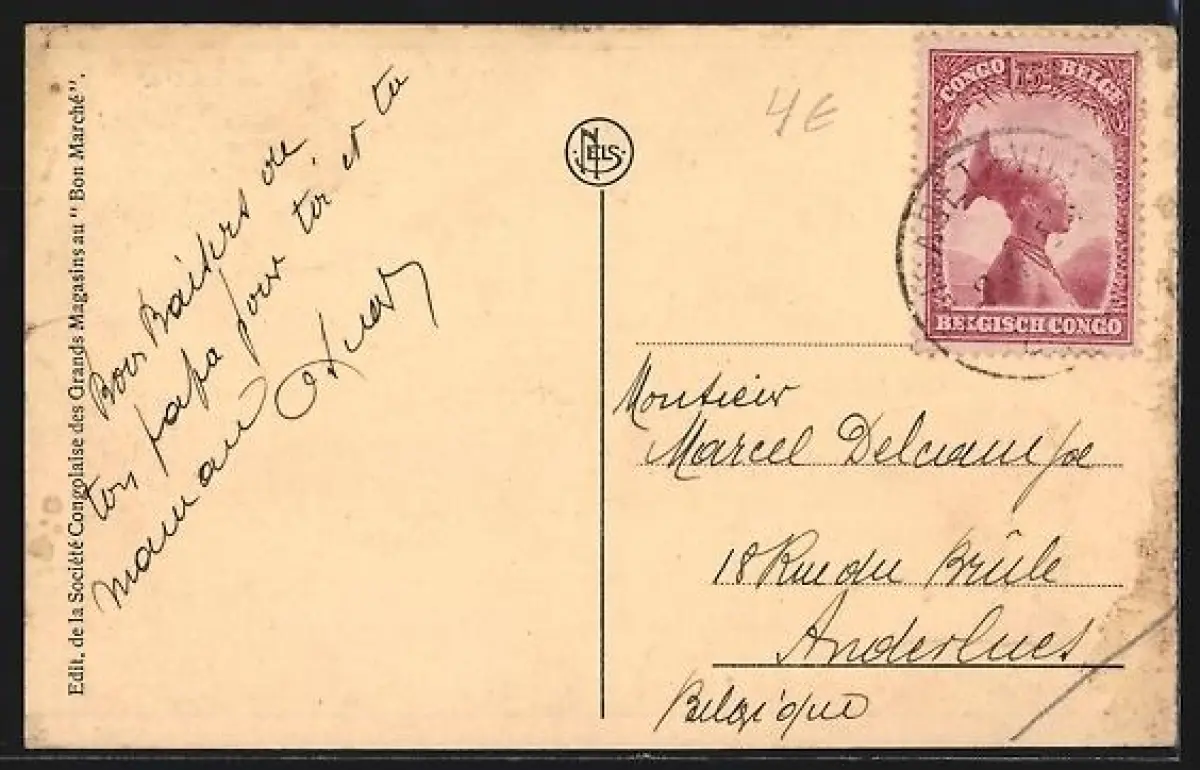 Edit. de la Société Congolaise des Grands Magasins au "Bon Marché".
Bons Baisers de
ton papa pour toi et ta
maman
NELS
4€
CONGO 75c BELGE
BELGISCH CONGO
Monsieur
Marcel Delcampe
18 Rue du Brûle
Anderlues
Belgique